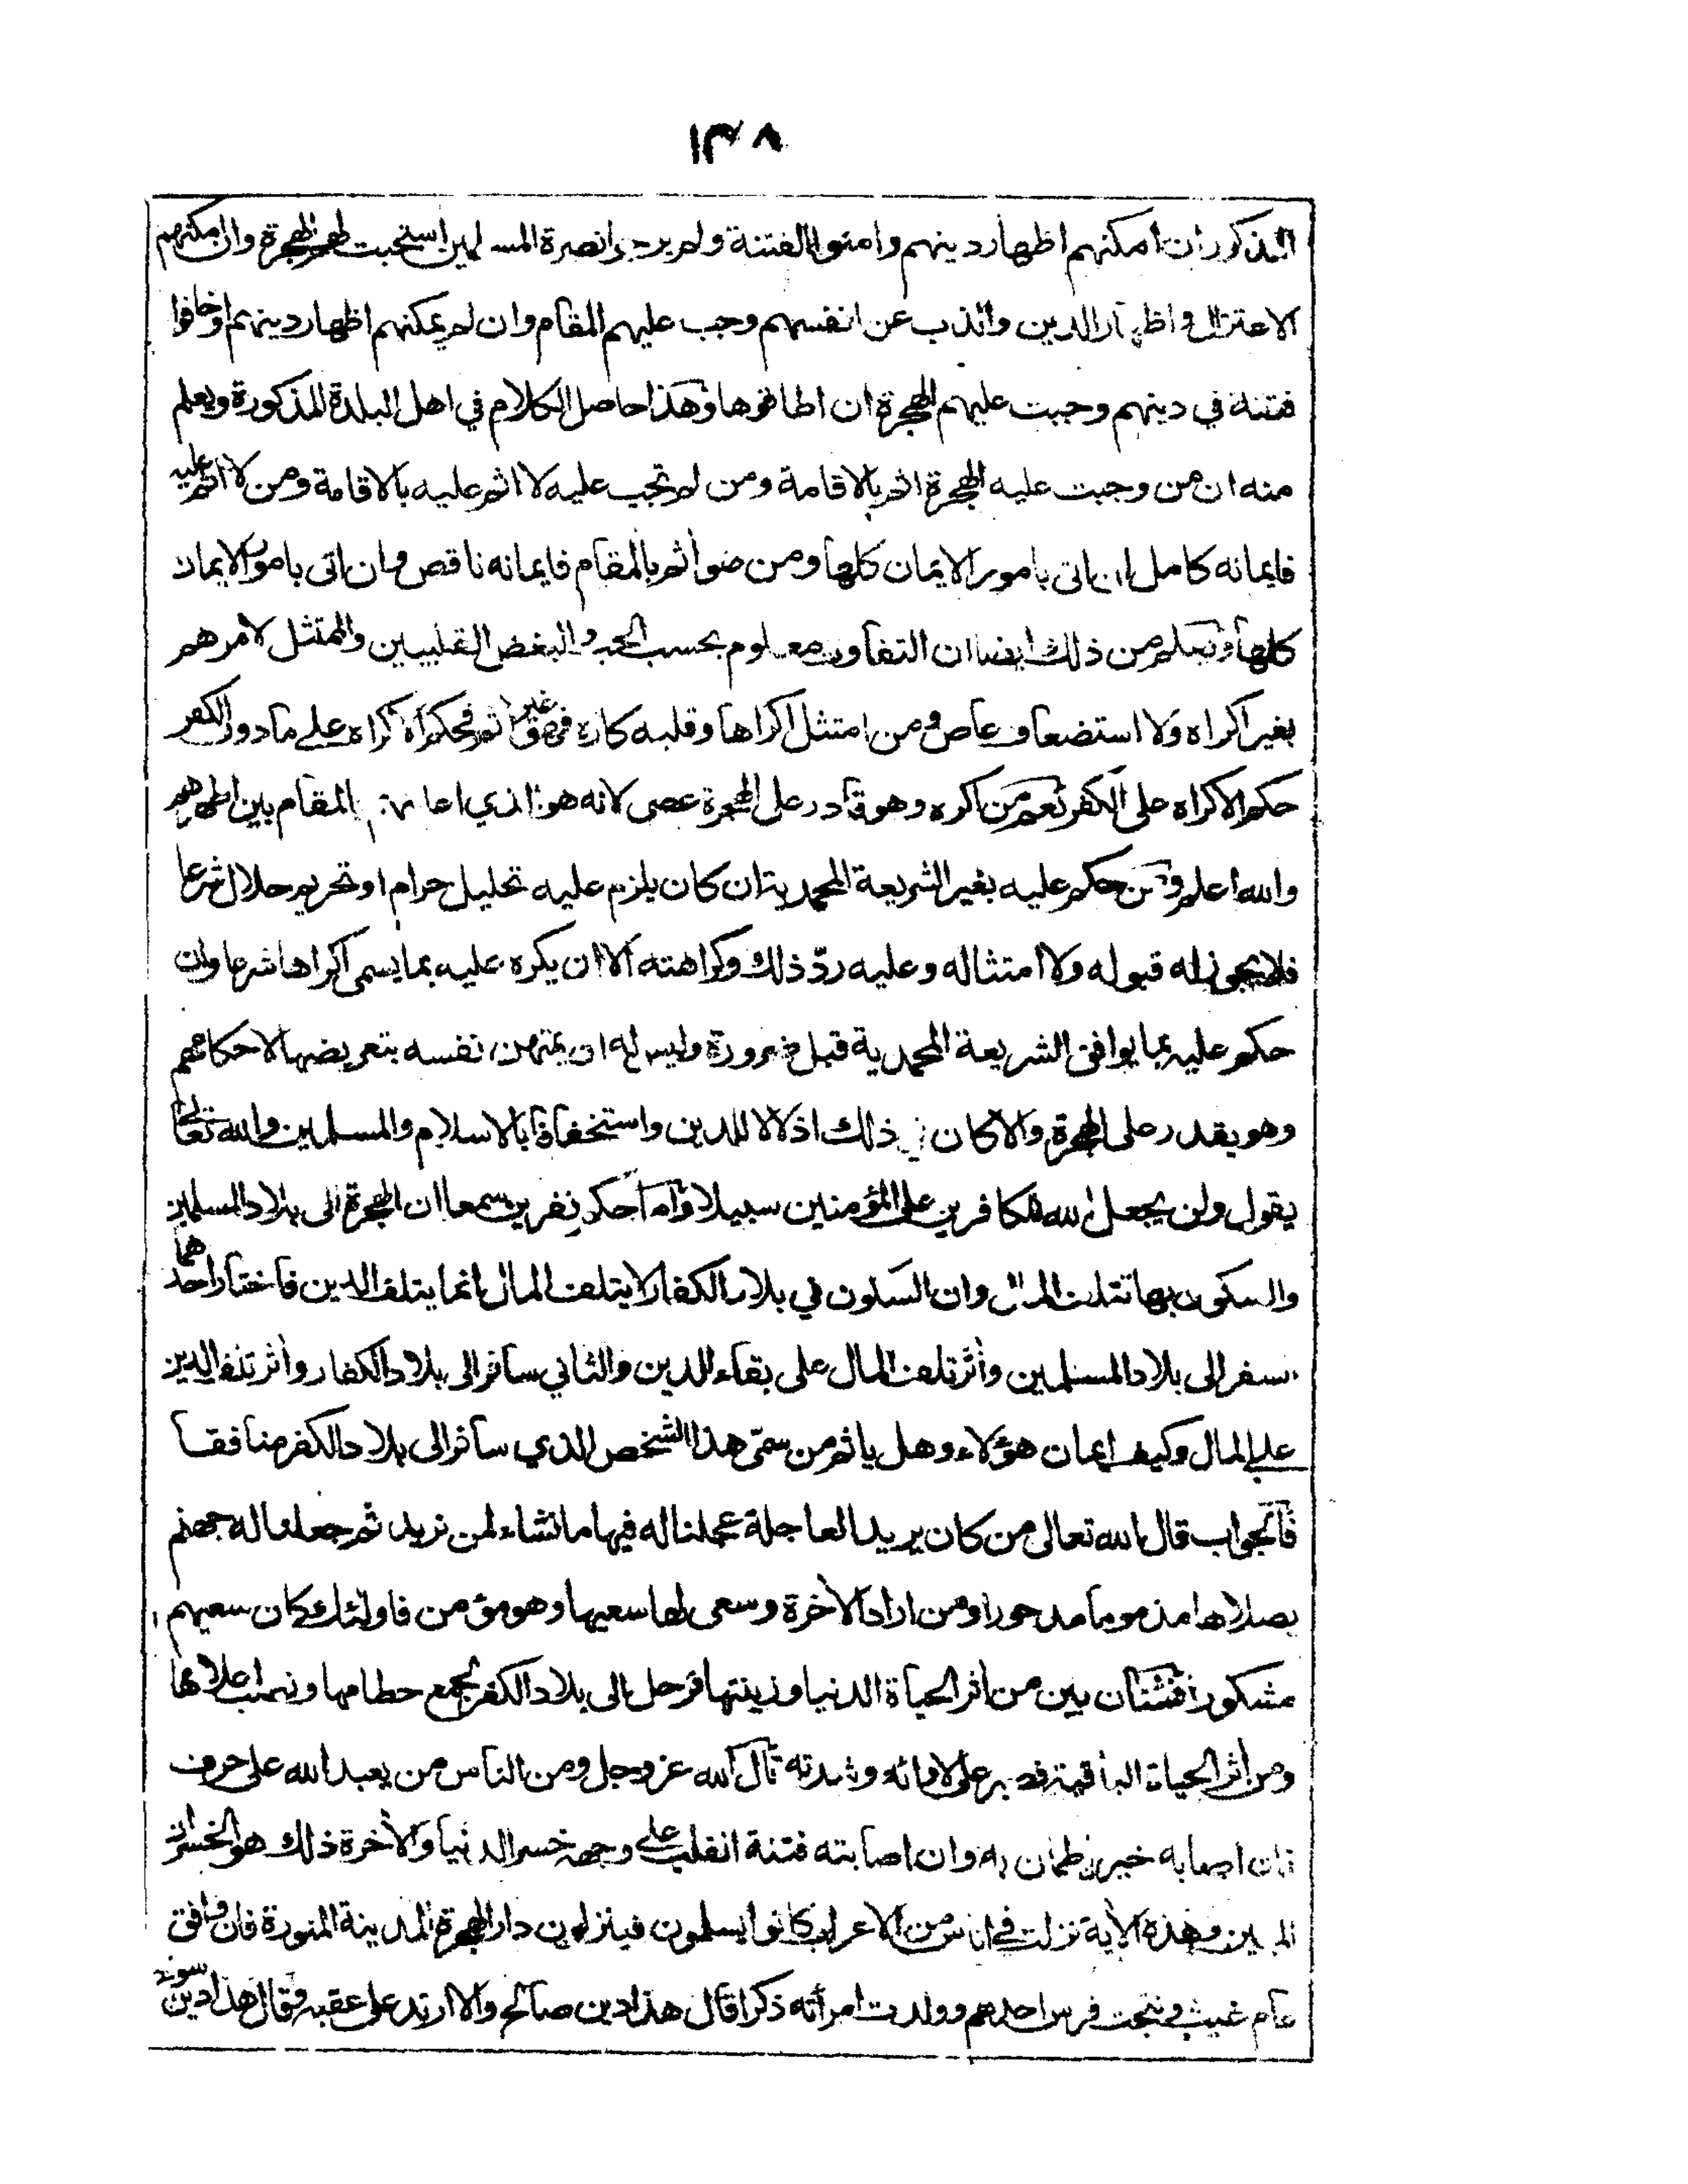 ١٣٨
المذكور ان امكنهم اظهار دينهم وامنوا الفتنة ولم يرجوا نصرة المسلمين استحبت لهم الهجرة وان امكنهم
الاعتزال واظهار الدين والذب عن انفسهم وجب عليهم المقام وان لم يمكنهم اظهار دينهم او خافوا
فتنة في دينهم وجبت عليهم الهجرة ان اطاقوها وهذا حاصل الكلام في اهل البلدة المذكورة ويعلم
منه ان من وجبت عليه الهجرة اثم بالاقامة ومن لم تجب عليه لا اثم عليه بالاقامة ومن لا اثم عليه
فايمانه كامل ان اتى بامور الايمان كلها ومن هو آثم بالمقام فايمانه ناقص وان اتى بامور الايمان
كلها ويعلم من ذلك ايضا ان التفاوت معلوم بحسب الحب والبغض القلبيين والممتثل لامرهم
بغير اكراه ولا استضعاف عاص ومن امتثل اكراها وقلبه كاره فهو غير آثم فحكم الاكراه على ما دون الكفر
حكم الاكراه على الكفر نعم من اكره وهو قادر على الهجرة عصى لانه هو الذي اعان المقام بين اظهرهم
والله اعلم ومن حكم عليه بغير الشريعة المحمدية ان كان يلزم عليه تحليل حرام او تحريم حلال شرعا
فلا يجوز له قبوله ولا امتثاله وعليه ردّ ذلك وكراهته الا ان يكره عليه بما يسمى اكراها شرعا وان
حكم عليه بما يوافق الشريعة المحمدية قبل ضرورة وليس له ان يمتهن نفسه بتعريضها لاحكامهم
وهو يقدر على الهجرة والا كان ذلك اذلالا للدين واستخفافا بالاسلام والمسلمين والله تعالى
يقول ولن يجعل الله للكافرين على المؤمنين سبيلا واما حكم نفرين سمعا ان الهجرة الى بلاد المسلمين
والسكون بها تتلف المال وان السكون في بلاد الكفار لا يتلف المال انما يتلف الدين فاختار احدهما
سفر الى بلاد المسلمين وأثر تلف المال على بقاء الدين والثاني سافر الى بلاد الكفار وأثر تلف الدين
على المال وكيف ايمان هؤلاء وهل ياثم من سمّى هذا الشخص الذي سافر الى بلاد الكفر منافقا
فالجواب قال الله تعالى من كان يريد العاجلة عجلنا له فيها ما نشاء لمن نريد ثم جعلنا له جهنم
يصلاها مذموما مدحورا ومن اراد الآخرة وسعى لها سعيها وهو مؤمن فاولئك كان سعيهم
مشكورا فشتان بين من آثر الحياة الدنيا وزينتها فرحل الى بلاد الكفر لجمع حطامها
ومن آثر الحياة الباقية فصبر على لاوائه وشدته قال الله عز وجل ومن الناس من يعبد الله على حرف
فان اصابه خير اطمان به وان اصابته فتنة انقلب على وجهه خسر الدنيا والآخرة ذلك هو الخسران
المبين وهذه الآية نزلت في اناس من الاعراب كانوا يسلمون فينزلون دار الهجرة المدينة المنورة فان وافق
عام غيث ونتجت فرس احدهم وولدت امرأته ذكرا قال هذا دين صالح والا ارتد على عقبه وقال هذا دين سوء